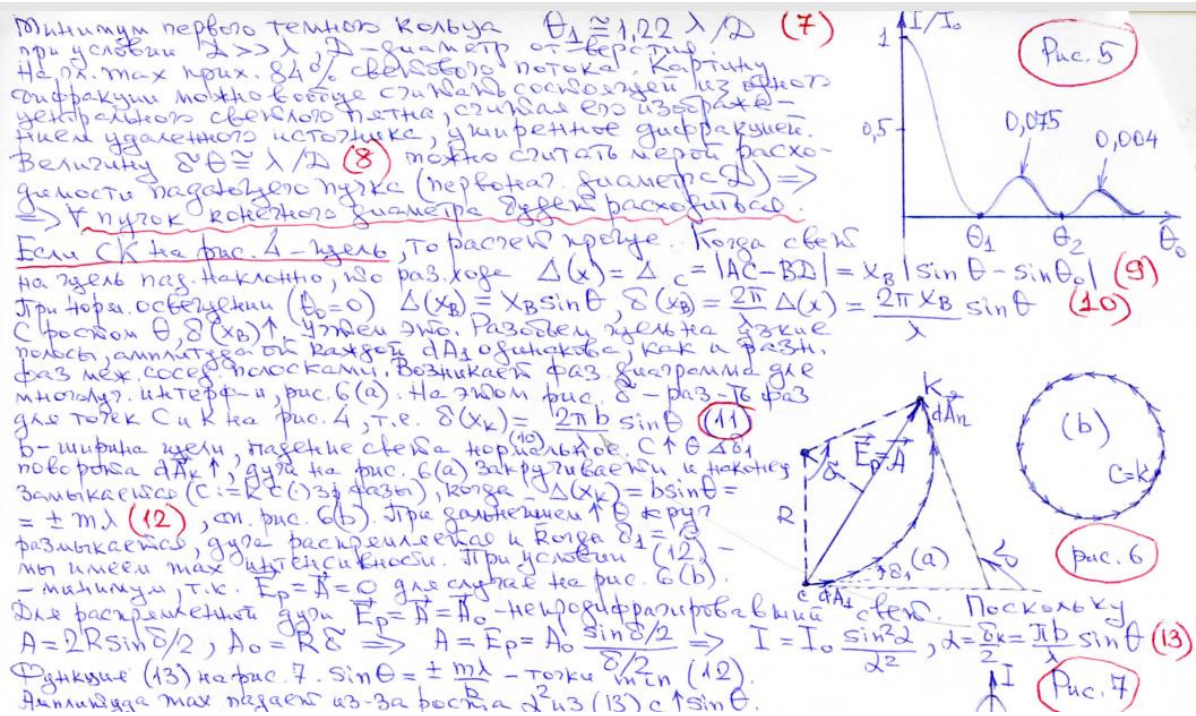 Минимум первого темного кольца θ₁ ≅ 1,22 λ/D (7)
при условии L>>λ, D-диаметр отверстия.
На гл. max прих. 84% светового потока. Картину
дифракции можно вообще считать состоящей из одного
центрального светлого пятна, считая его изображе-
нием удаленного источника, уширенное дифракцией.
Величину δθ ≅ λ/D (8) можно считать мерой расхо-
димости падающего пучка (первонач. диаметра D) =>
=> ∀ пучок конечного диаметра будет расходиться.
I/I₀
1
0,5
0,075
0,004
θ₁
θ₂
θ₀
Рис. 5
Если СК на рис. 4 - щель, то расчет проще. Когда свет
на щель пад. наклонно, то раз. хода Δ(x) = Δ c = |AC-BD| = x_B |sin θ - sin θ₀| (9)
При норм. освещении (θ₀=0) Δ(x_B) = x_B sin θ, δ(x_B) = 2π/λ Δ(x) = 2π x_B/λ sin θ (10)
С ростом θ, δ(x_B)↑. Учтем это. Разобьем щель на узкие
полосы, амплитуда от каждой dA₁ одинакова, как и разн.
фаз меж. сосед. полосками. Возникает фаз. диаграмма для
многолуч. интерф-и, рис. 6(a). На этом рис. δ - раз-ть фаз
для точек С и К на рис. 4, т.е. δ(x_K) = 2πb/λ sin θ (11)
b-ширина щели, падение света нормальное. С ↑ θ (10) δ₁
поворота dA_K ↑, дуга на рис. 6(a) закручивается и наконец
замыкается (С := К с () фазы), когда Δ(x_K) = b sin θ =
= ± mλ (12), см. рис. 6(b). При дальнейшем ↑ θ круг
размыкается, дуга распрямляется и когда δ₁ =
мы имеем max интенсивности. При условии (12) -
- минимум, т.к. E⃗p = A⃗ = 0 для случая на рис. 6(b).
Для распрямленной дуги E⃗p = A⃗ = A⃗₀ - непродифрагировавший свет. Поскольку
A = 2R sin δ/2, A₀ = Rδ => A = Ep = A₀ sin δ/2 / δ/2 => I = I₀ sin²α/α², α = δк/2 = πb/λ sin θ (13)
Функция (13) на рис. 7. sin θ = ± mλ/b - точки min (12).
Амплитуда max падает из-за роста α² из (13) с ↑ sin θ.
K
dA⃗n
E⃗p = A⃗
R
δ
δ₁
(a)
c dA₁
(b)
C=K
рис. 6
I
Рис. 7